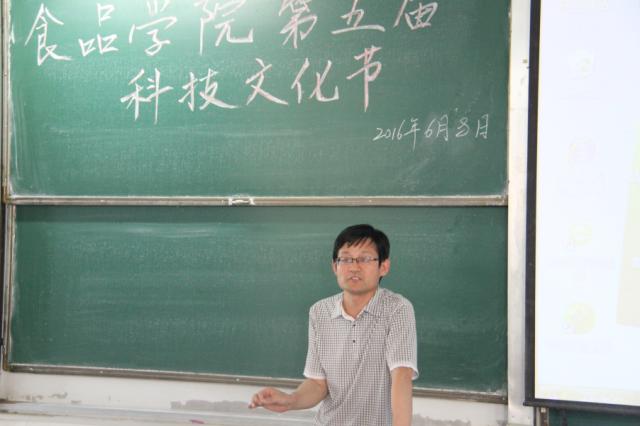 食品学院第五届
科技文化节
2016年6月8日